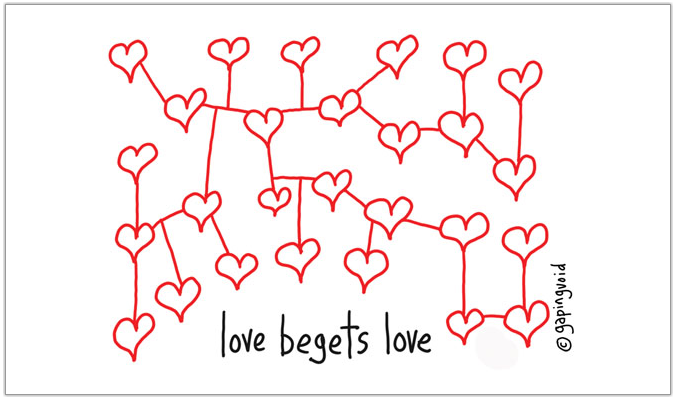 love begets love
© gapingvoid